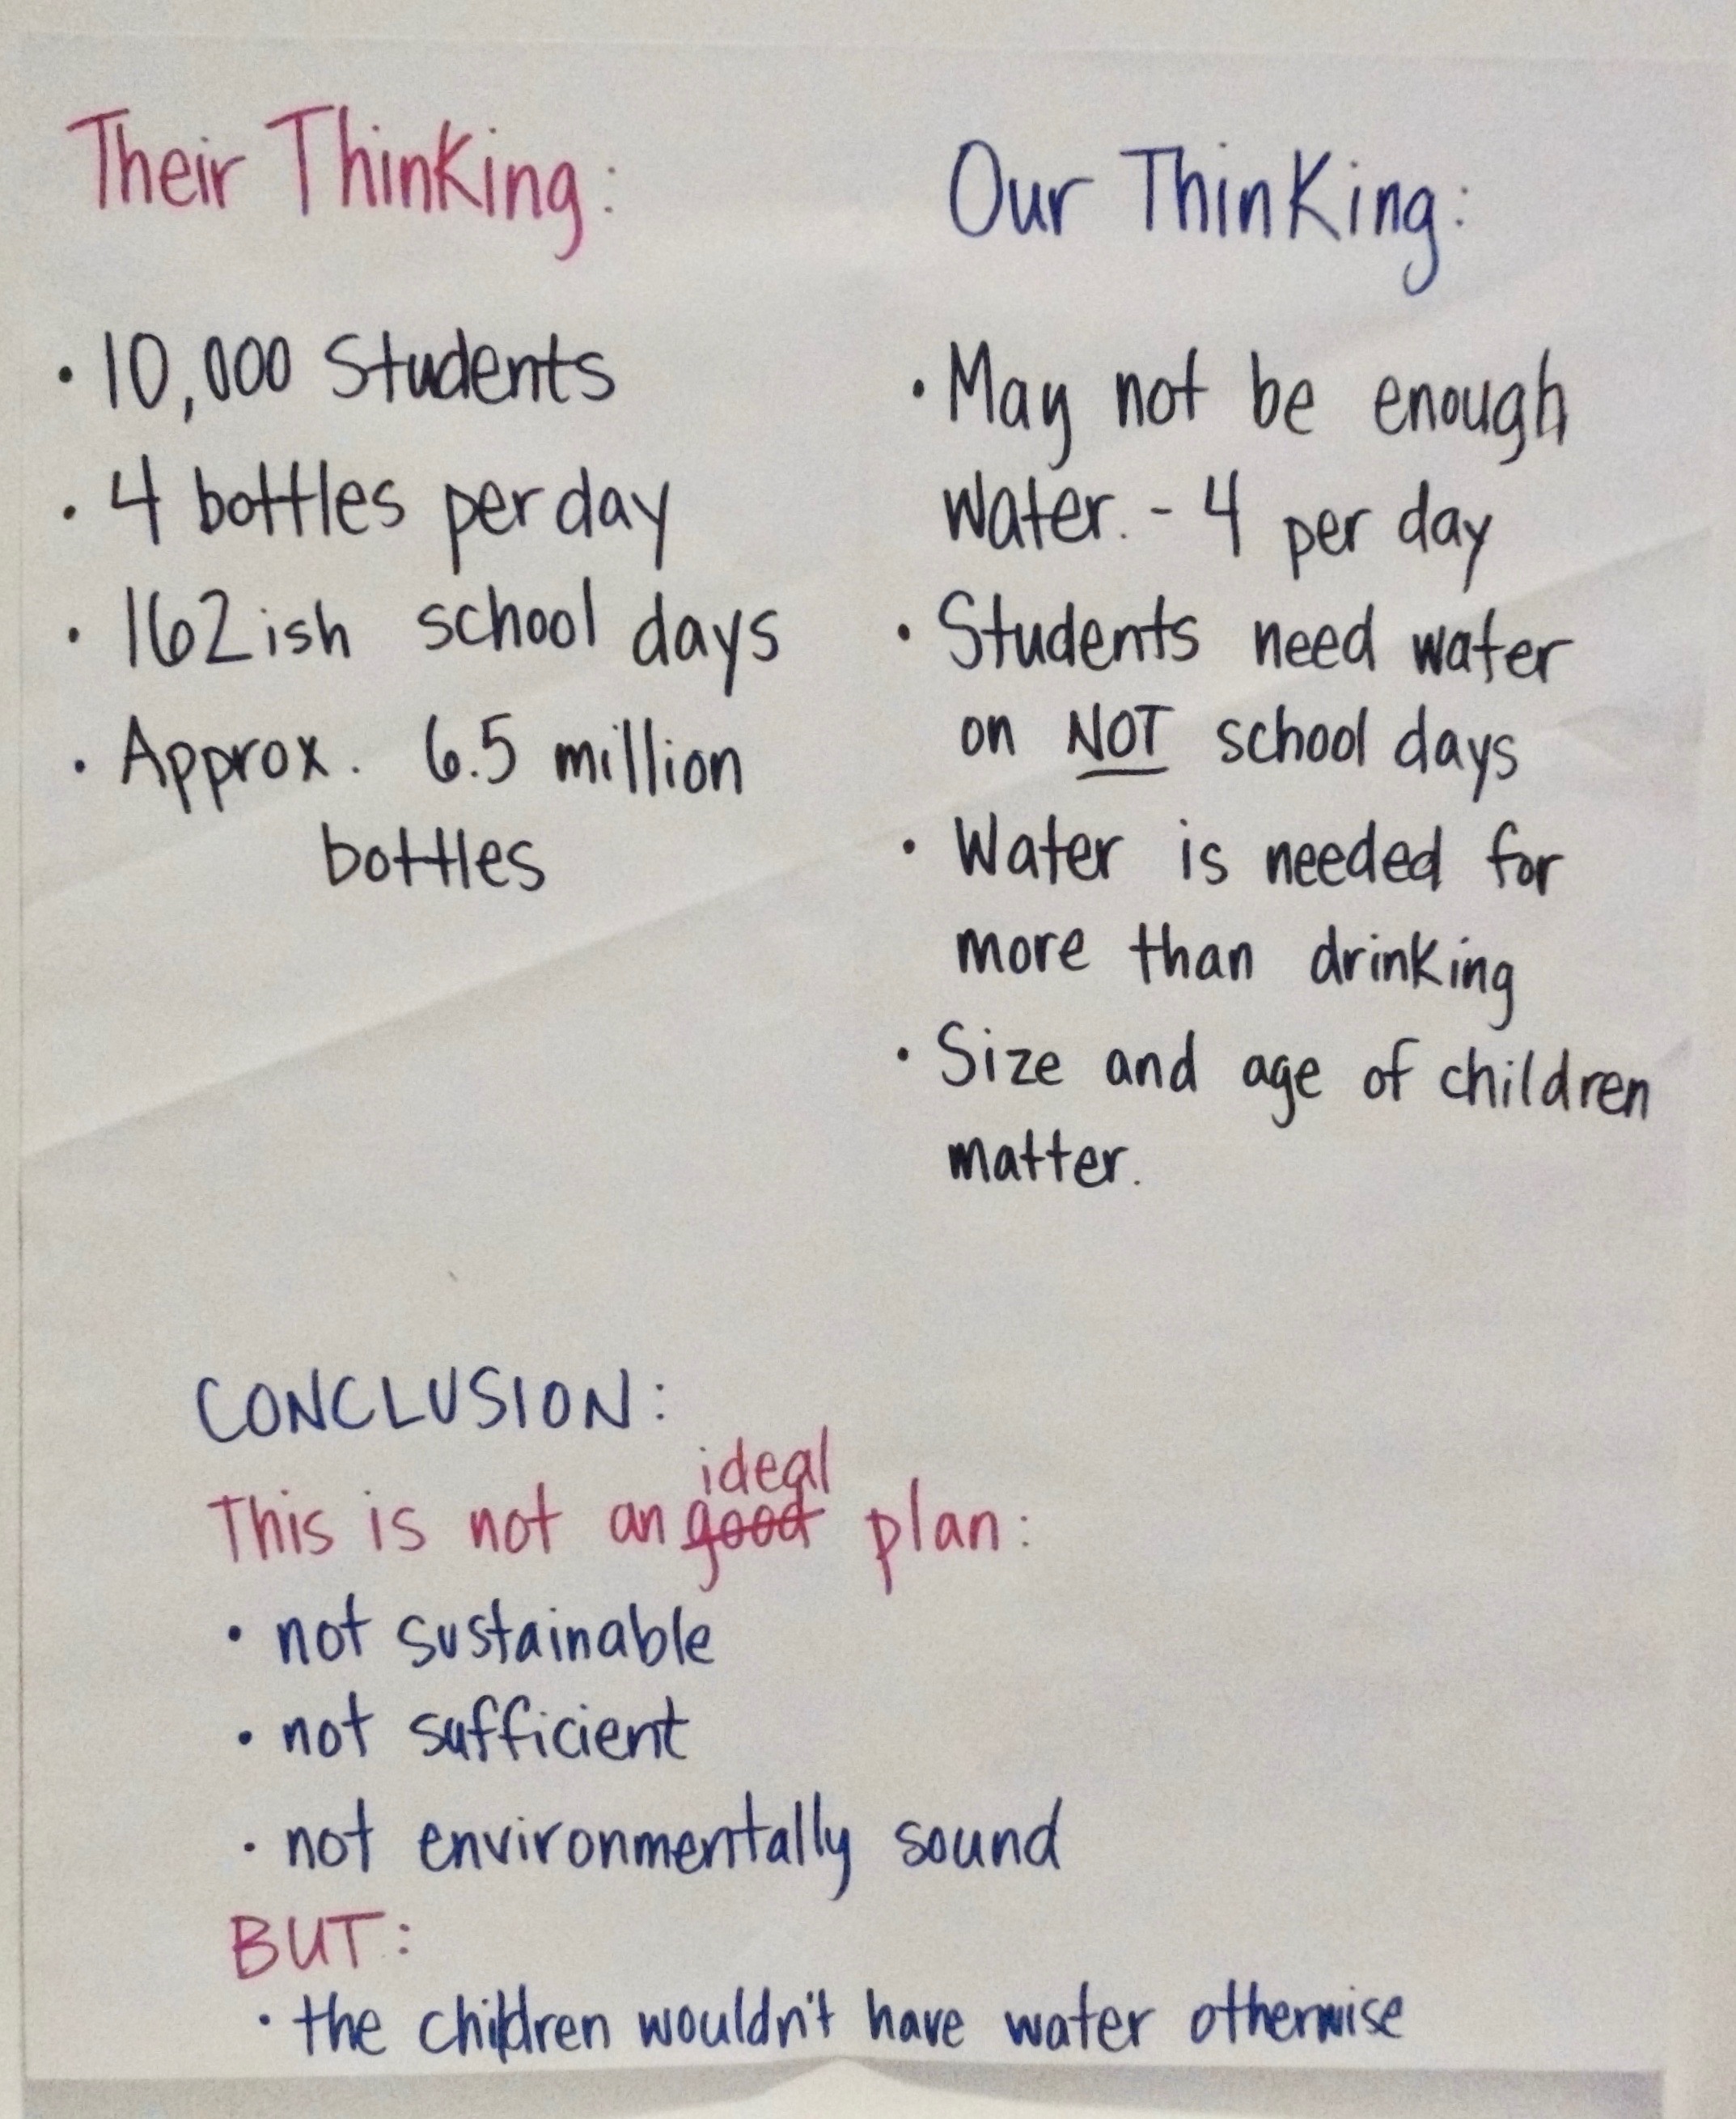 Their Thinking:
• 10,000 Students
• 4 bottles per day
• 162ish school days
• Approx. 6.5 million
bottles
Our Thinking:
• May not be enough
water. - 4 per day
• Students need water
on NOT school days
• Water is needed for
more than drinking
• Size and age of children
matter.
CONCLUSION:
ideal
This is not an good plan:
• not sustainable
• not sufficient
• not environmentally sound
BUT:
• the children wouldn't have water otherwise